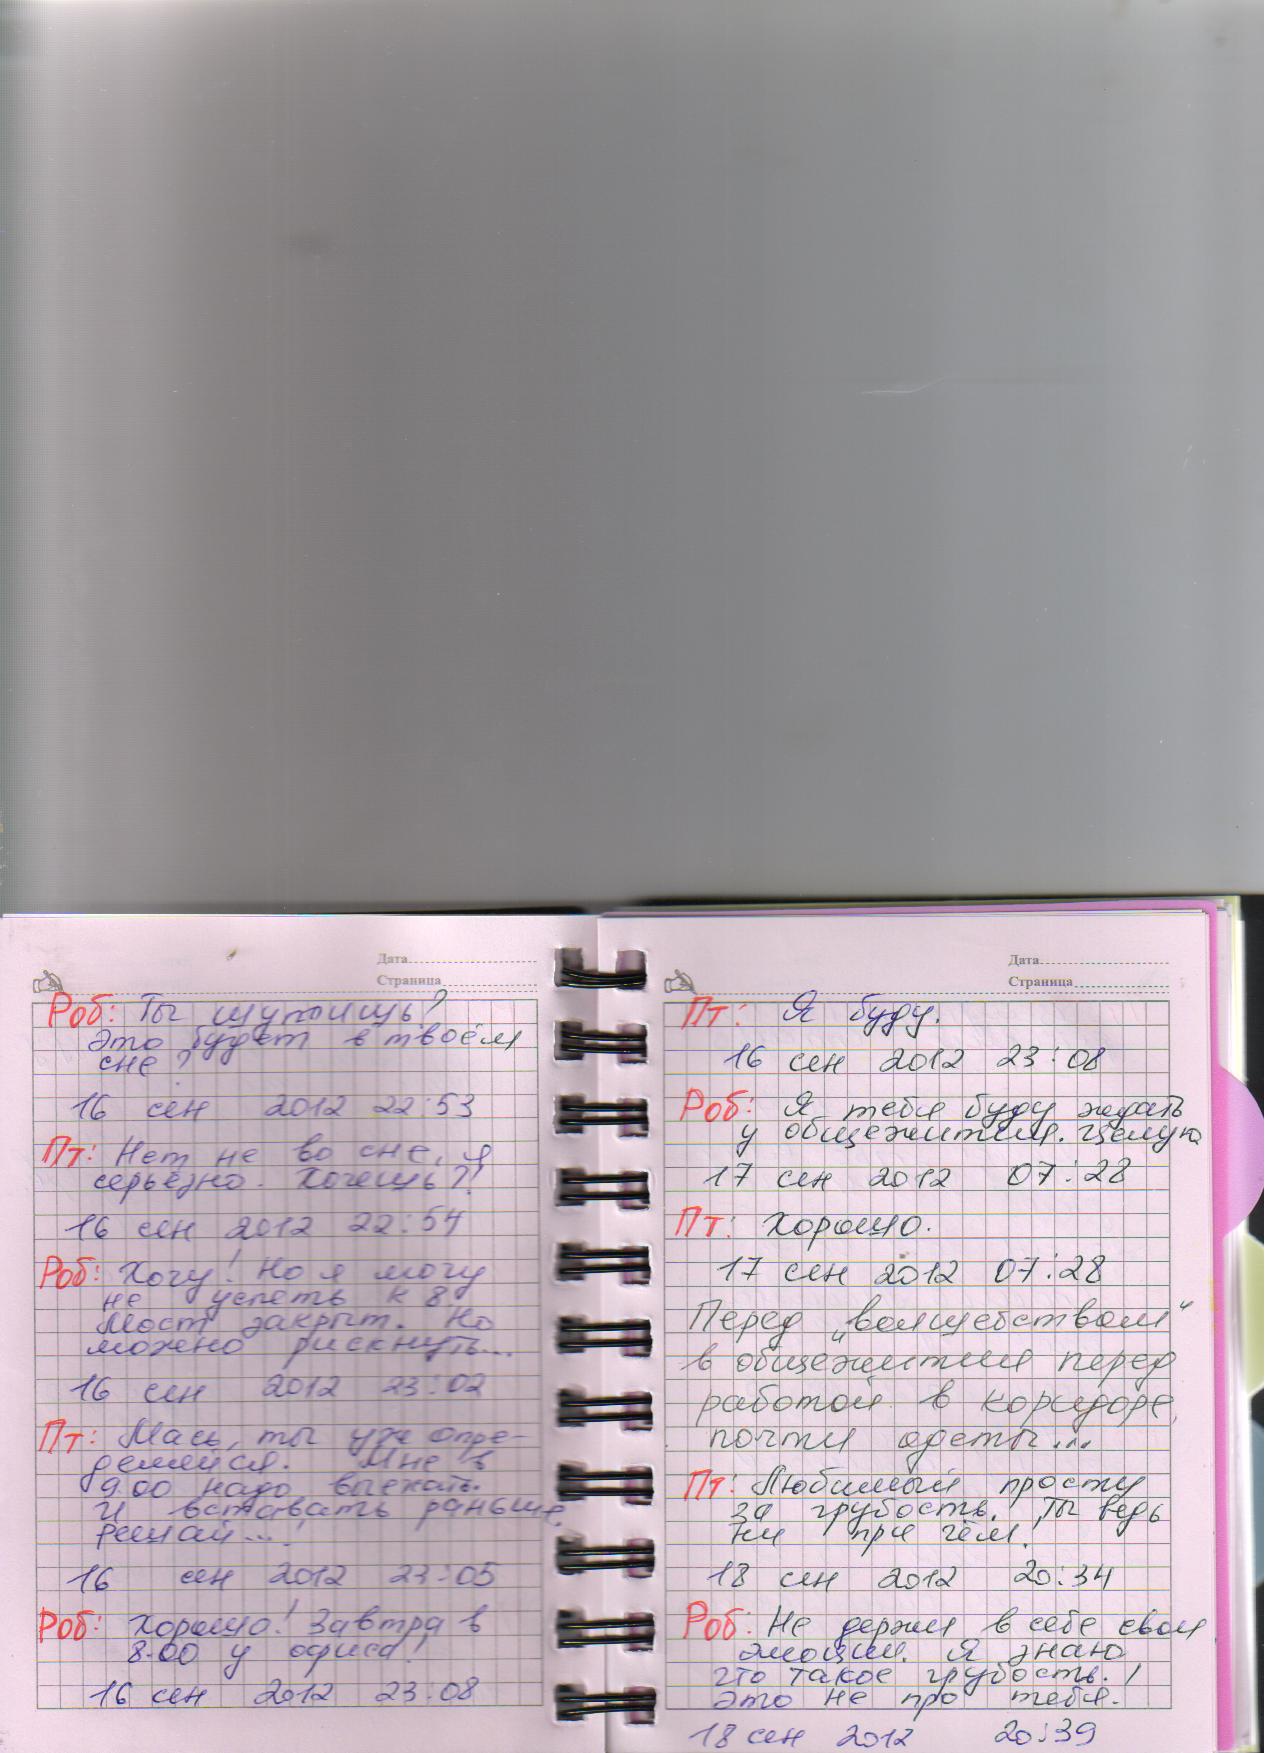 Дата
Страница
Роб: Ты шутишь?
Это будет в твоём
сне?
16 сен 2012 22:53
Пт: Нет не во сне, я
серьёзно. Хочешь?!
16 сен 2012 22:54
Роб: Хочу! Но я могу
не успеть к 8.
Мост закрыт. Но
можно рискнуть...
16 сен 2012 23:02
Пт: Мась, ты уже опре-
делился. Мне в
9.00 надо выехать.
И вставать раньше,
решай...!
16 сен 2012 23:05
Роб: Хорошо! Завтра в
8.00 у офиса!
16 сен 2012 23:08
Дата
Страница
Пт: Я буду.
16 сен 2012 23:08
Роб: Я тебя буду ждать
у общежития. Целую
17 сен 2012 07:28
Пт: Хорошо.
17 сен 2012 07:28
Перед „волшебством“
в общежитии перед
работой в коридоре,
почти одеты...
Пт: Любимый прости
за грубость. Ты ведь
ни при чём!
18 сен 2012 20:34
Роб: Не держи в себе свои
эмоции. Я знаю
что такое грубость. !
Это не про тебя.
18 сен 2012 20:39